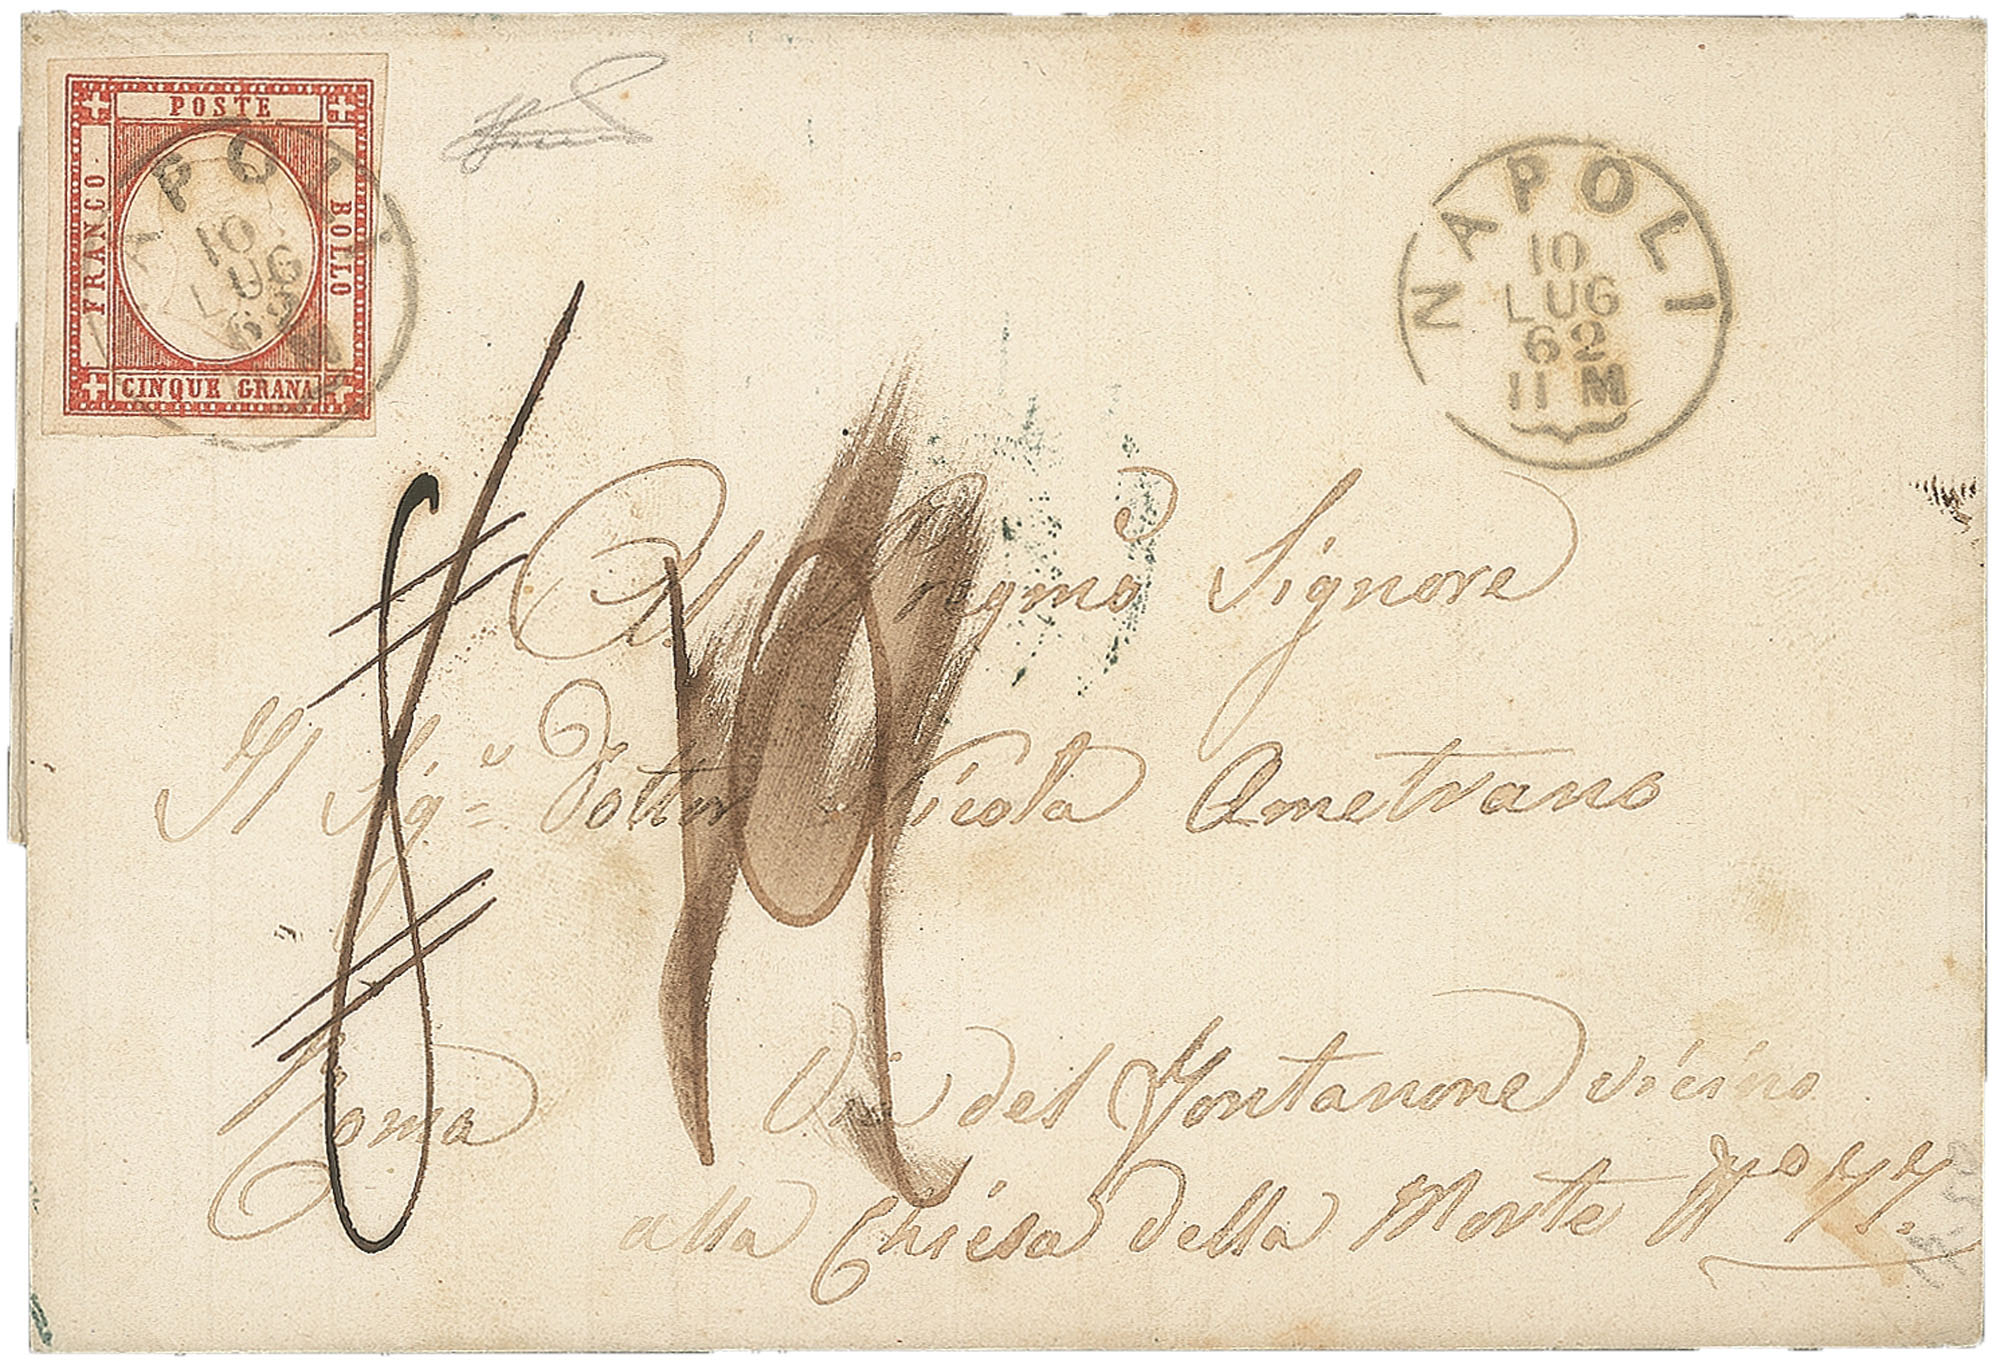 POSTE
FRANCO
BOLLO
CINQUE GRANA
APOLI
10
LUG
62
NAPOLI
10
LUG
62
11 M
All' Pregmo Signore
Il Sigre Dottor Nicola Ametrano
Roma
Via del Fontanone vicino
alla Chiesa della Morte No 77.